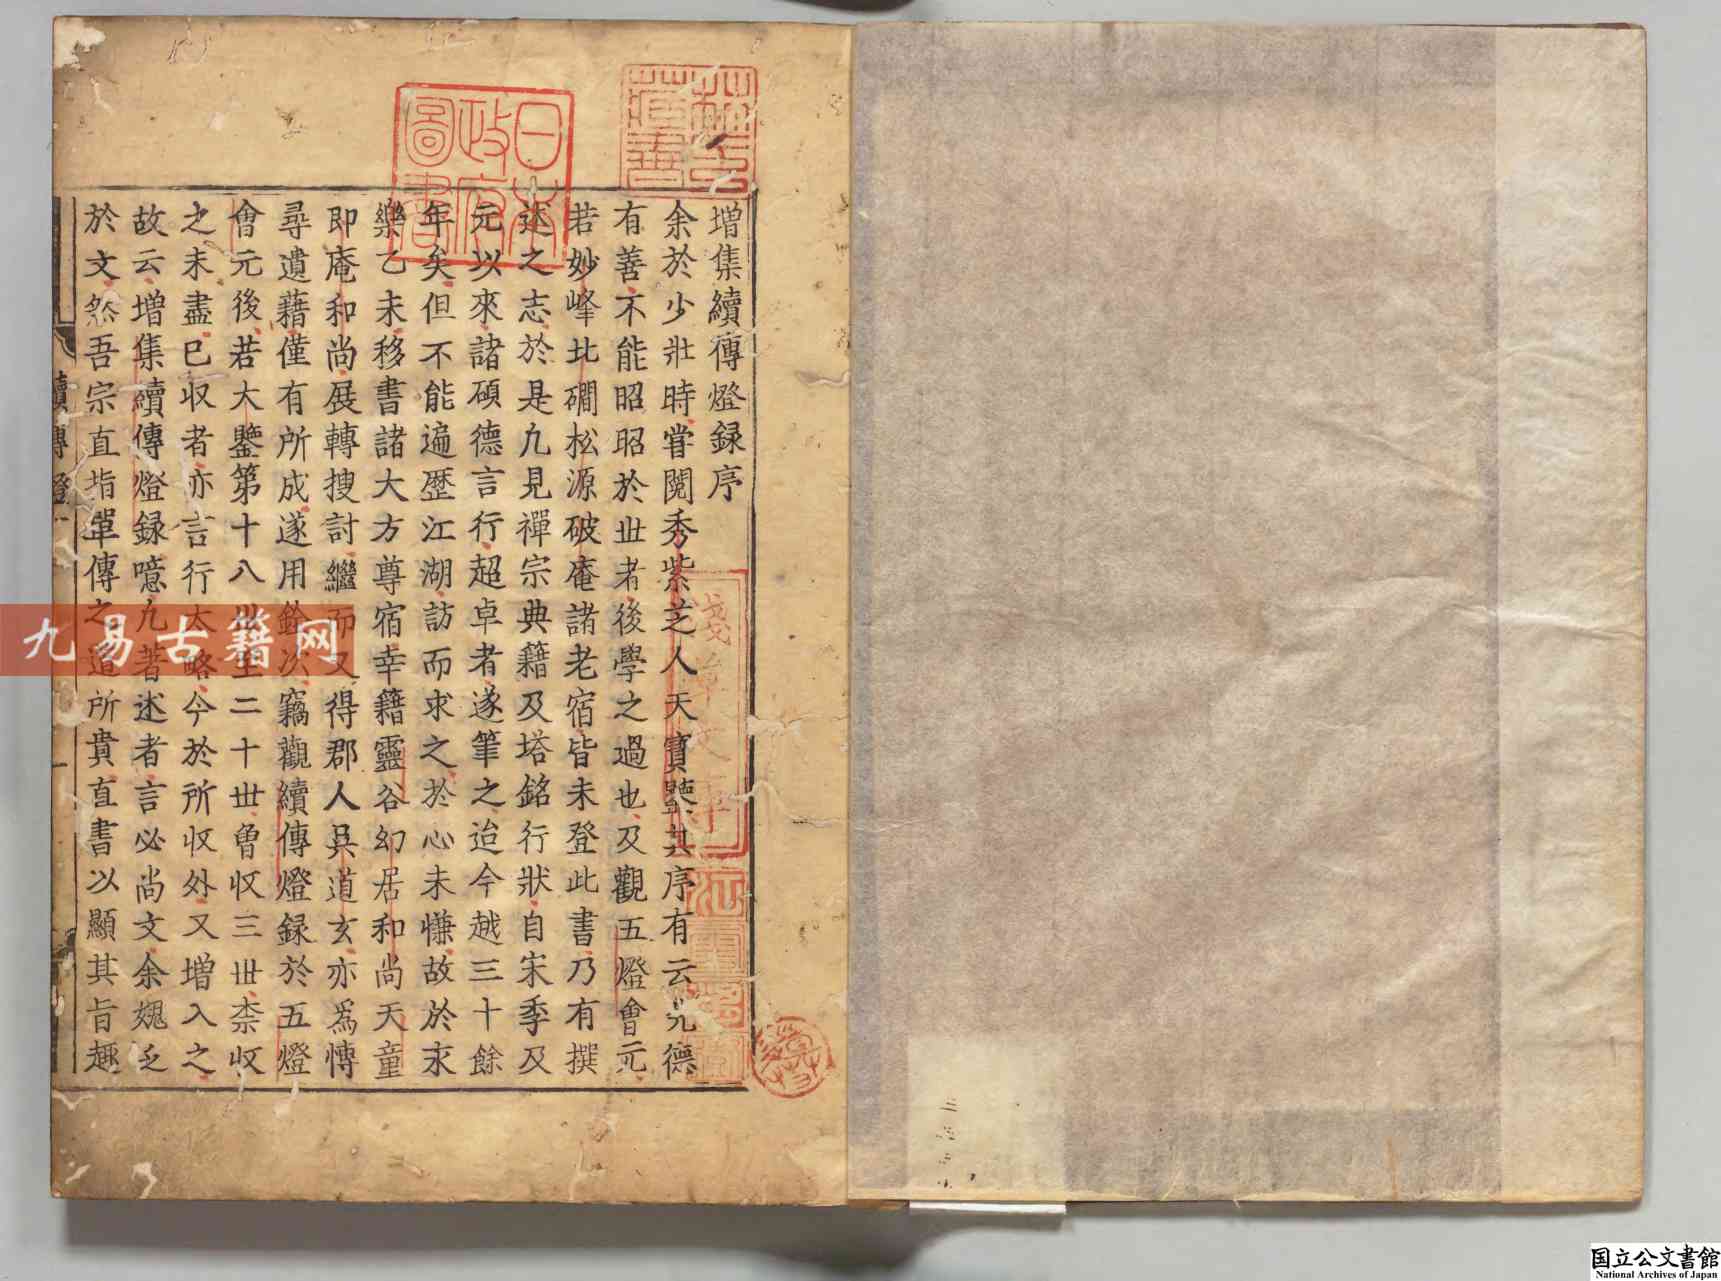 增集續傳燈録序
余於少壯時甞閱秀紫芝人天寳鑒其序有云先德
有善不能昭昭於丗者後學之過也及觀五燈會元
若妙峰北磵松源破庵諸老宿皆未登此書乃有撰
述之志於是九見禪宗典籍及塔銘行狀自宋季及
元以來諸碩德言行超卓者遂筆之迨今越三十餘
年矣但不能遍歷江湖訪而求之於心未慊故於永
樂乙未移書諸大方尊宿幸籍靈谷幻居和尚天童
即庵和尚展轉搜討繼而又得郡人吳道玄亦爲博
尋遺藉僅有所成遂用銓次竊觀續傳燈録於五燈
會元後若大鑒第十八丗至二十丗曾收三丗柰收
之未盡已收者亦言行太略今於所收外又增入之
故云增集續傳燈録噫九著述者言必尚文余媿乏
於文然吾宗直指單傳之道所貴直書以顯其旨趣
續傳燈
一
日本
政府
圖書
淺草文庫
九易古籍网
国立公文書館
National Archives of Japan